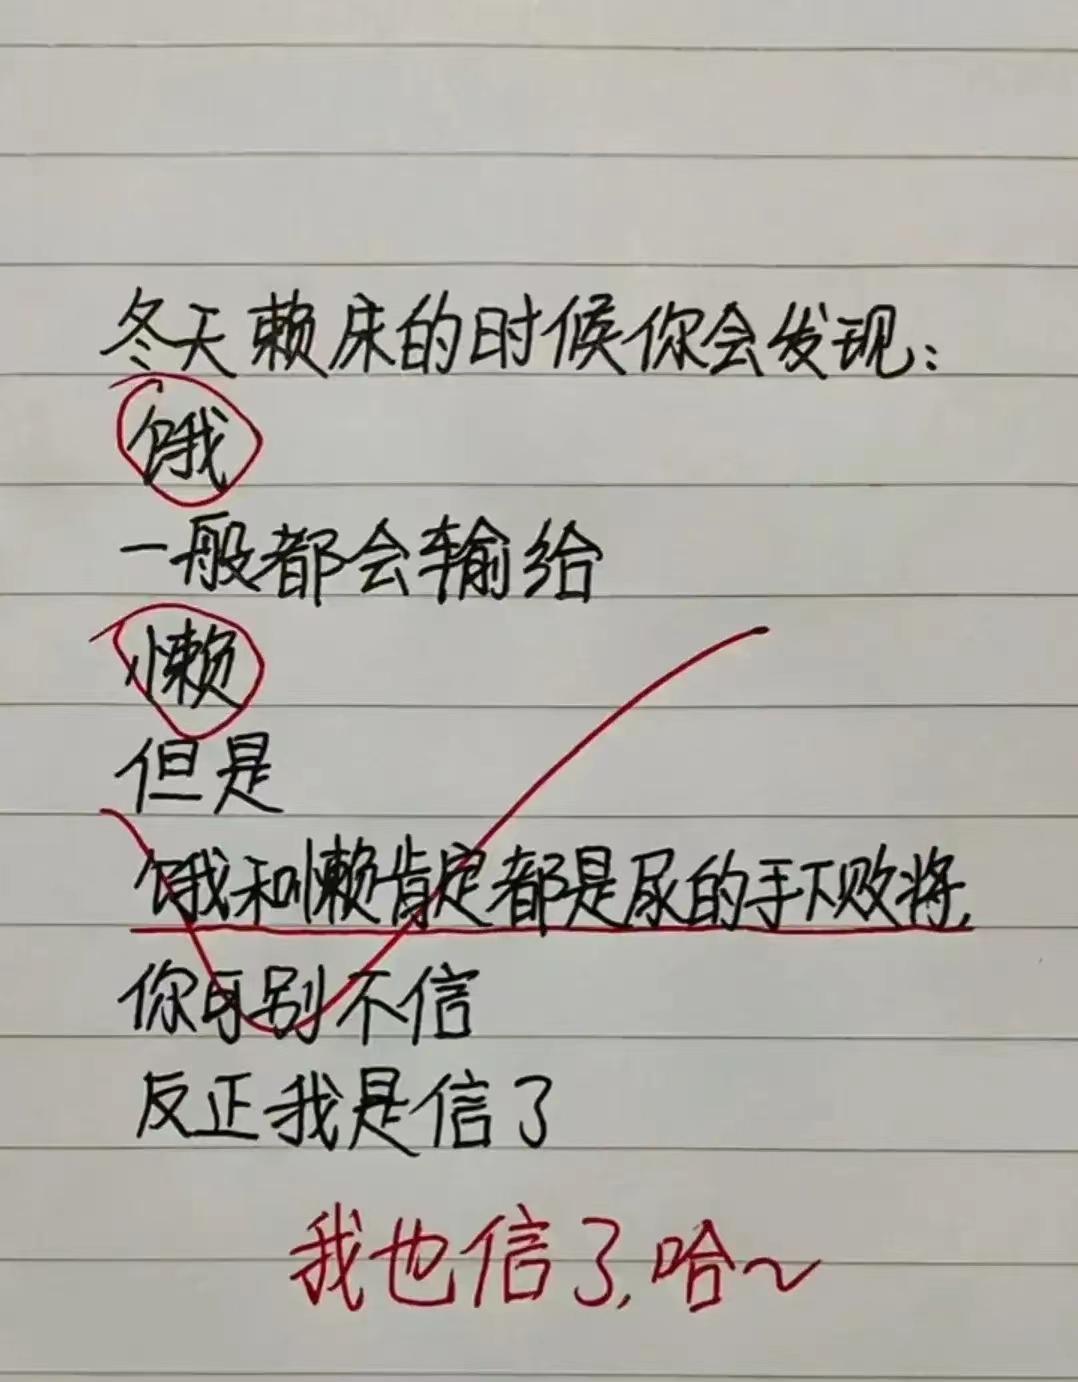 冬天赖床的时候你会发现：
饿
一般都会输给
懒
但是
饿和懒肯定都是尿的手下败将，
你可别不信
反正我是信了
我也信了，哈～